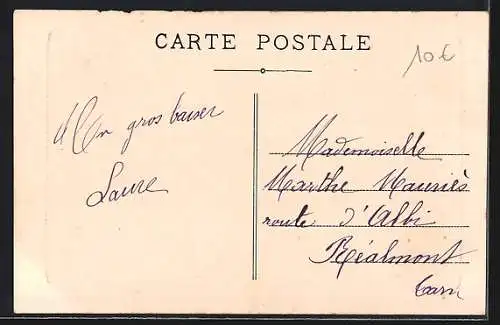 CARTE POSTALE
10 €
Un gros baiser
Laure
Mademoiselle
Marthe Mauriès
route d'Albi
Réalmont
Tarn